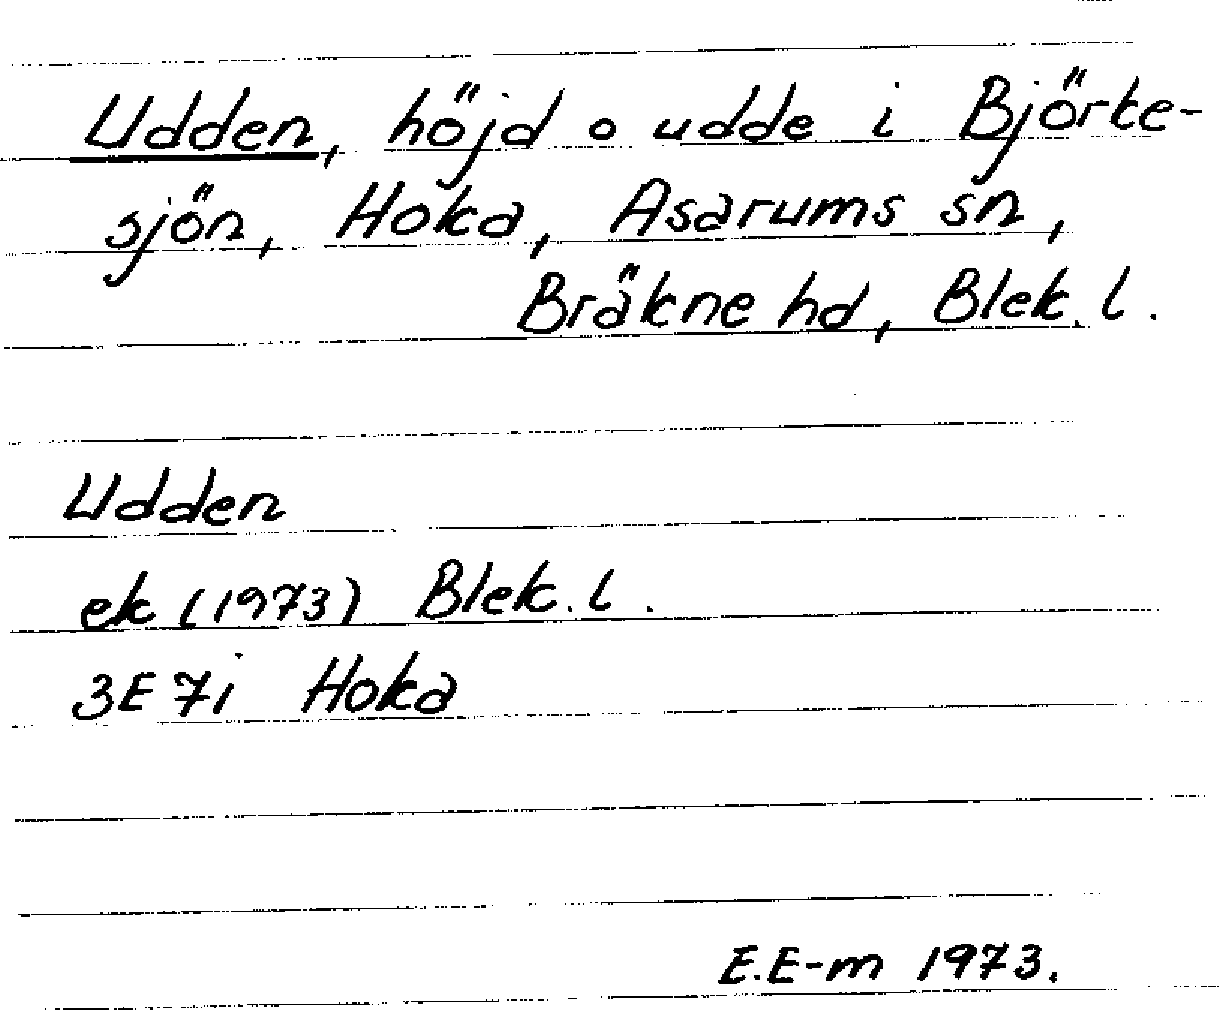 Udden, höjd o udde i Björke-
sjön, Hoka, Asarums sn,
Bräkne hd, Blek. l.
Udden
ek (1973) Blek. l.
3E 7i Hoka
E.E-m 1973.